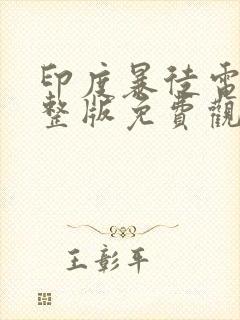 印度暴徒電
整版免費觀
王彰平